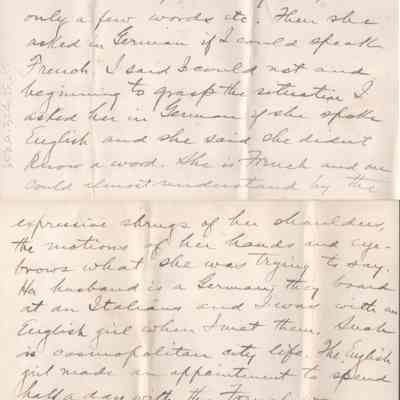 only a few words etc. Then she
asked in German if I could speak
French I said I could not and
beginning to grasp the situation I
asked her in German if she spoke
English and she said she didn't
know a word. She is French and one
could almost understand by the
expressive shrugs of her shoulders,
the motions of her hands and eye-
brows what she was trying to say.
Her husband is a German, they board
at an Italians and I was with an
English girl when I met them. Such
is cosmopolitan city life. The English
girl made an appointment to spend
half a day with the French